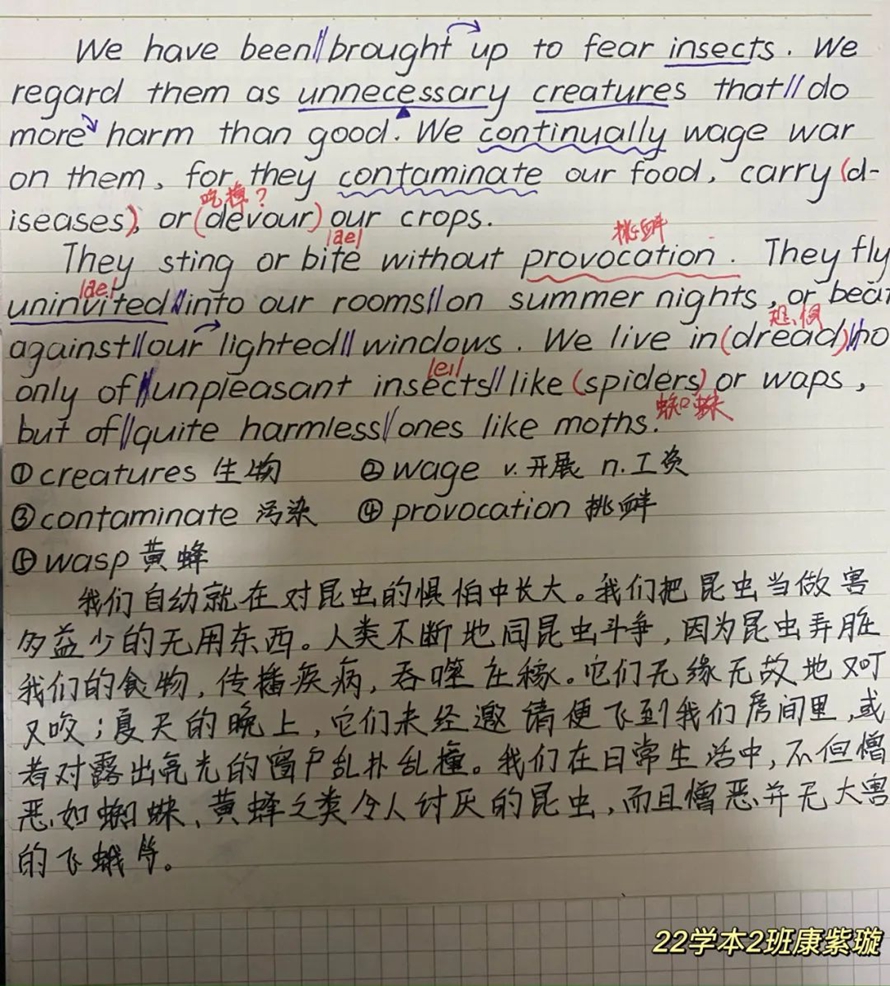 We have been//brought up to fear insects. We
regard them as unnecessary creatures that//do
more harm than good. We continually wage war
on them, for they contaminate our food, carry (d-
吃掉?
iseases), or (devour) our crops.
|ae| 挑衅
They sting or bite without provocation. They fly
|ae|
uninvited//into our rooms//on summer nights, or beat
恐惧
against//our lighted//windows. We live in (dread)//no
|ei|
only of//unpleasant insects//like (spiders) or waps,
蜘蛛
but of//quite harmless//ones like moths.
①creatures 生物 ②wage v.开展 n.工资
③contaminate 污染 ④provocation 挑衅
⑤wasp 黄蜂
我们自幼就在对昆虫的惧怕中长大。我们把昆虫当做害
多益少的无用东西。人类不断地同昆虫斗争,因为昆虫弄脏
我们的食物,传播疾病,吞噬庄稼。它们无缘无故地又叮
又咬;夏天的晚上,它们未经邀请便飞到我们房间里,或
者对露出亮光的窗户乱扑乱撞。我们在日常生活中,不但憎
恶如蜘蛛、黄蜂之类令人讨厌的昆虫,而且憎恶并无大害
的飞蛾等。
22学本2班康紫璇